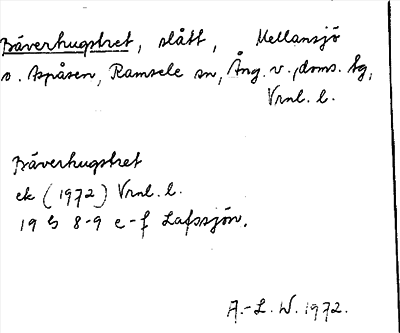 Bäverhugstret, slått, Mellansjö
o. Aspåsen, Ramsele sn, Ång. v. doms. tg,
Vrnl. l.
Bäverhugstret
ek (1972) Vrnl. l.
19 G 8-9 e-f Lafssjön.
A.-L. W. 1972.